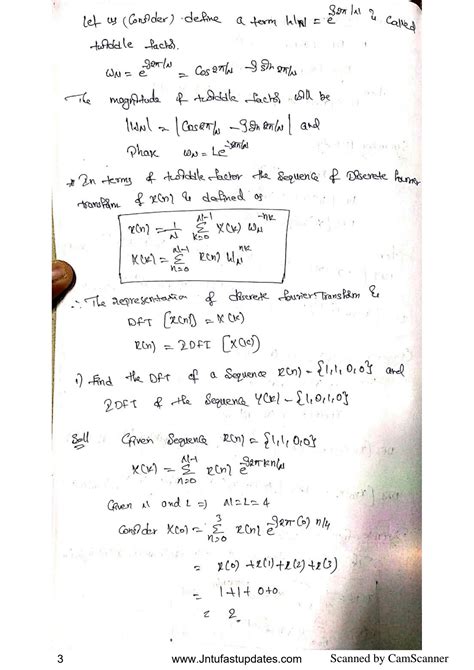 Let us (Consider) define a term W_N = e^{-j2π/N} is called
twiddle factor.
W_N = e^{-j2π/N} = Cos 2π/N - j Sin 2π/N
The magnitude of twiddle factor will be
|W_N| = |Cos 2π/N - j Sin 2π/N| and
Phase W_N = Le^{-j2π/N}
* In terms of twiddle factor the sequence of Discrete Fourier
transform of x(n) is defined as
x(n) = 1/N Σ_{k=0}^{N-1} X(k) W_N^{-nk}
X(k) = Σ_{n=0}^{N-1} x(n) W_N^{nk}
∴ The representation of discrete fourier Transform is
DFT [x(n)] = X(k)
x(n) = IDFT [X(k)]
1) Find the DFT of a sequence x(n) - {1,1,0,0} and
IDFT of the sequence Y(k) - {1,0,1,0}
Soll Given Sequence x(n) = {1,1,0,0}
X(k) = Σ_{n=0}^{N-1} x(n) e^{-j2πkn/N}
Given N and L => N=L=4
Consider X(0) = Σ_{n=0}^{3} x(n) e^{-j2π(0)n/4}
= x(0) + x(1) + x(2) + x(3)
= 1+1+0+0
= 2
3 www.Jntufastupdates.com Scanned by CamScanner